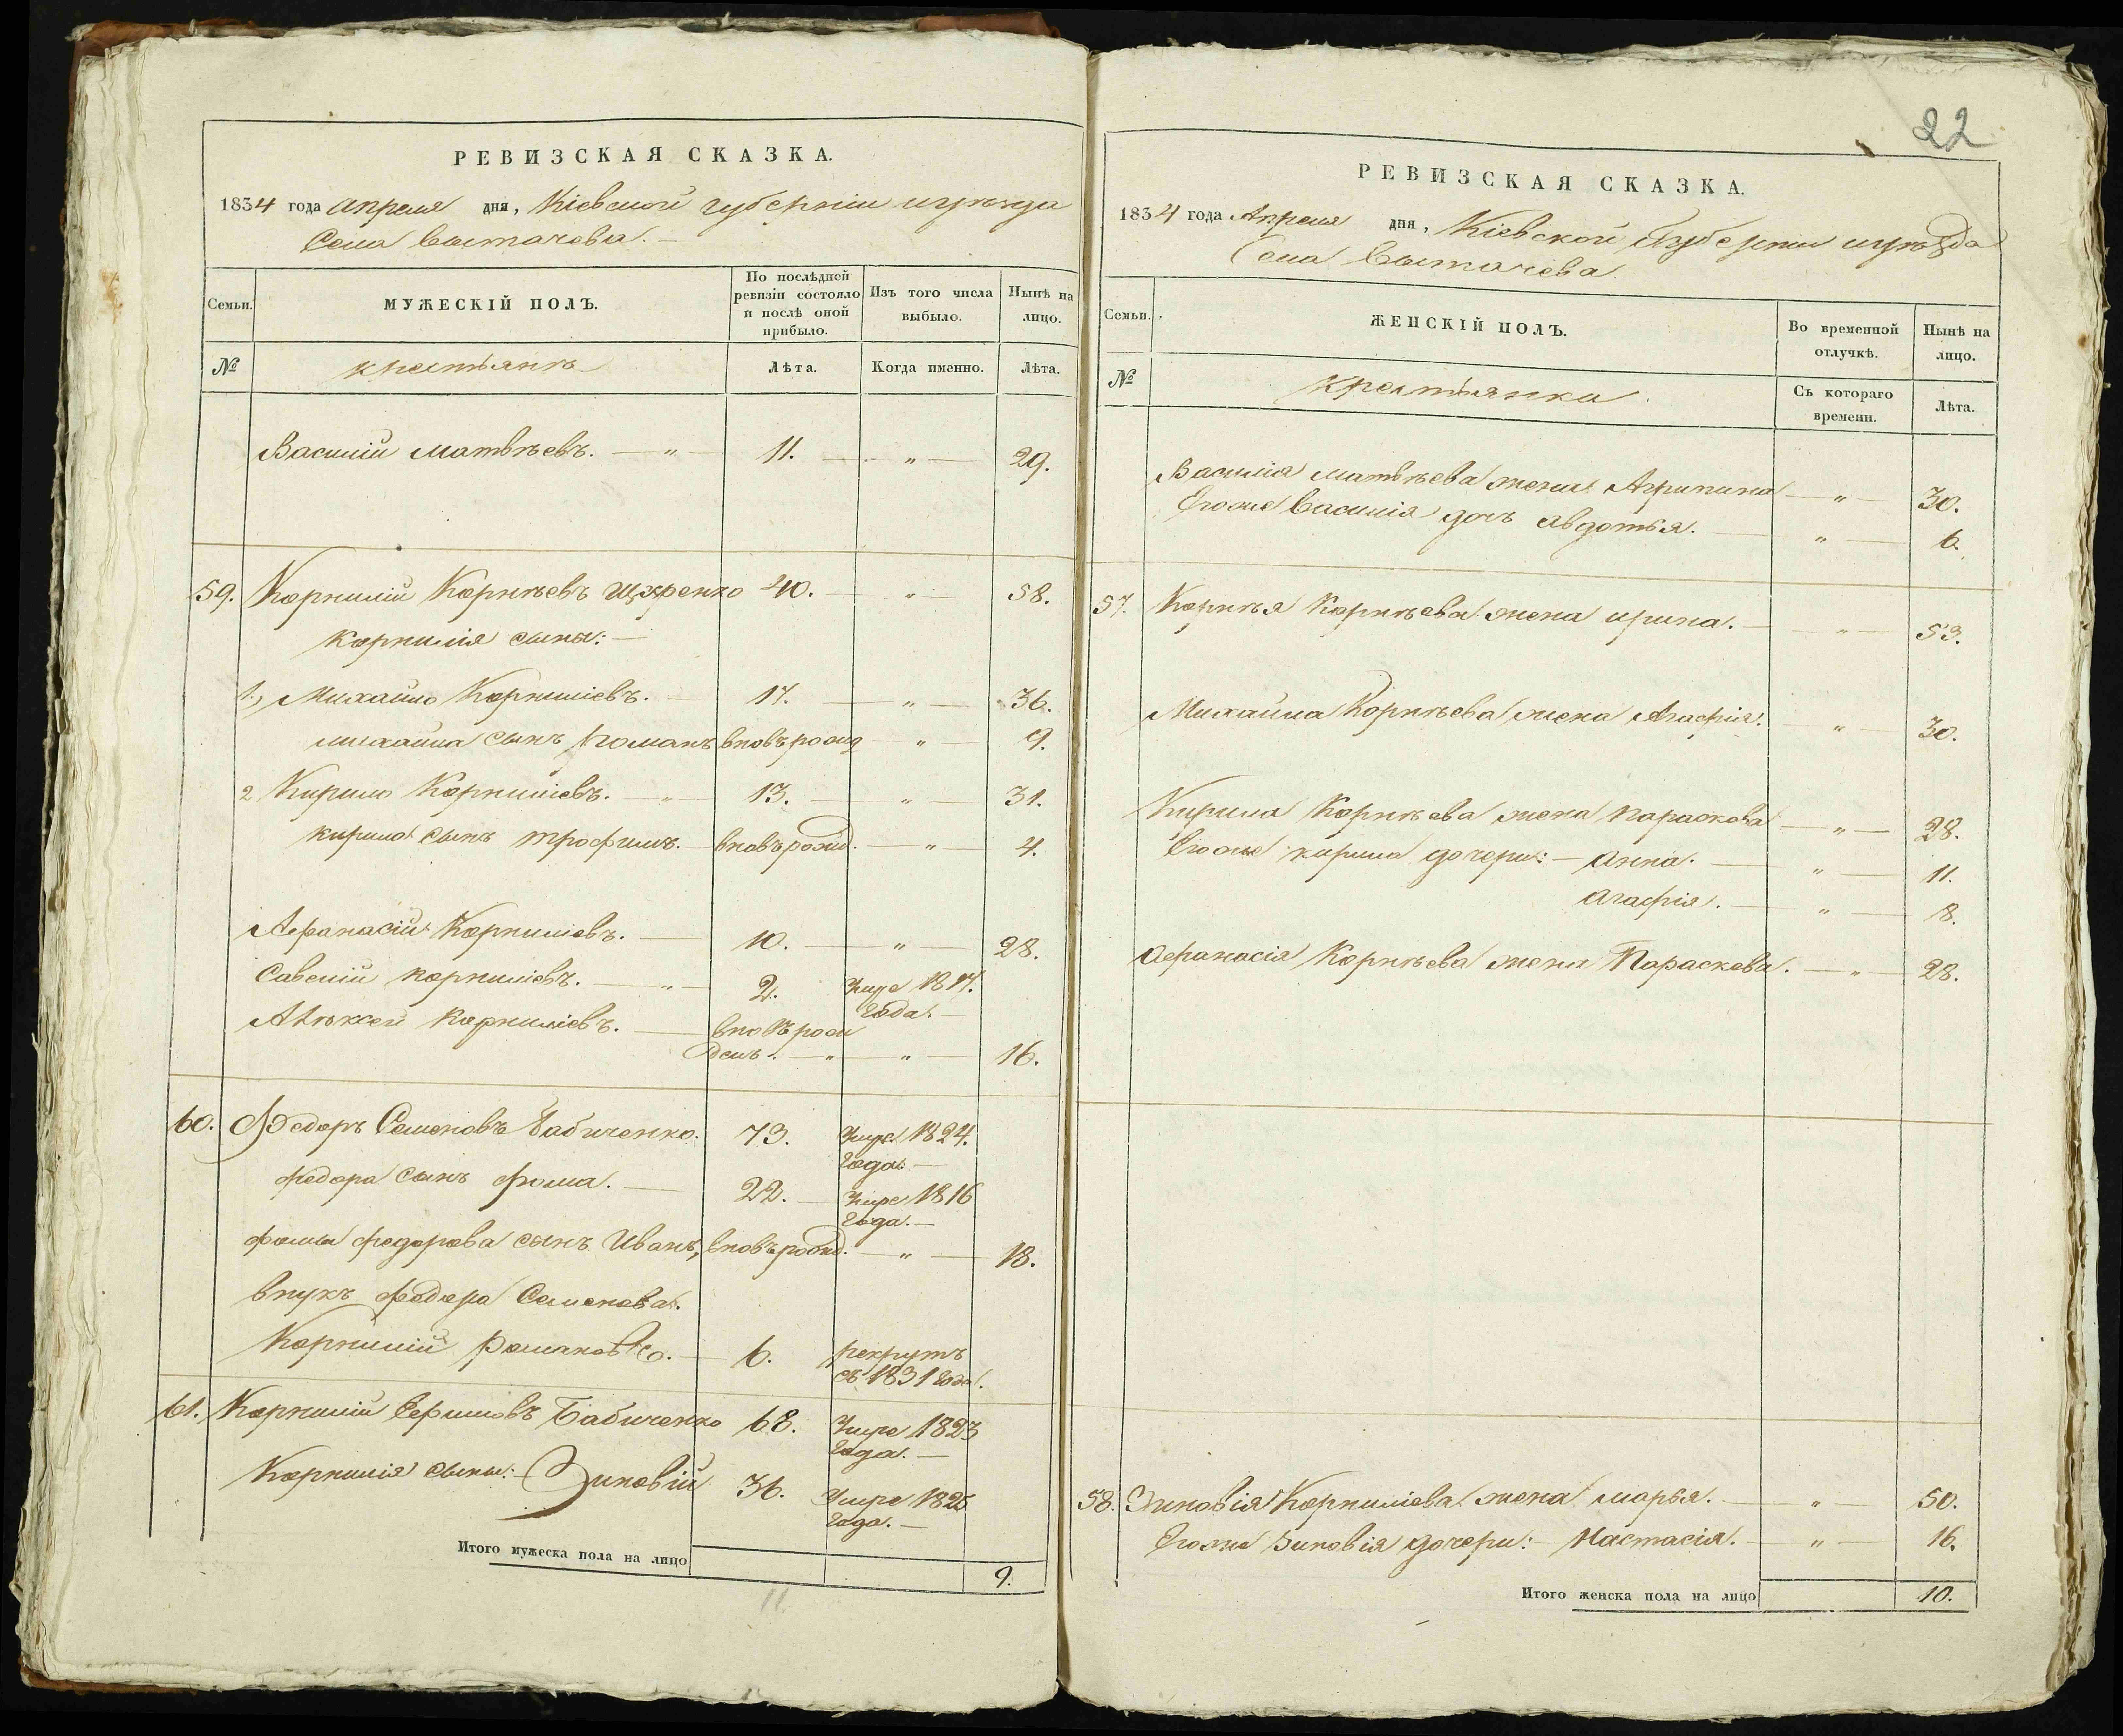 РЕВИЗСКАЯ СКАЗКА.
1834 года апреля дня, Кіевской губерніи и уѣзда
Села Вытачева. —
Семьи.
МУЖЕСКІЙ ПОЛЪ.
По послѣдней ревизіи состояло и послѣ оной прибыло.
Изъ того числа выбыло.
Нынѣ на лицо.
№
крестьянъ
Лѣта.
Когда именно.
Лѣта.
Василій Матвѣевъ. — " — 11. — " — 29.
59. Корнилій Корнѣевъ 40. — " — 58.
Корнилія сыны: —
1., Михайло Корниліевъ. — 17. — " — 36.
михайла сынъ Романъ вновь рожд — " — 9.
2 Кирило Корниліевъ. — " — 13. — " — 31.
кирила сынъ трофимъ. — вновь рожд. — " — 4.
Афанасій Корниліевъ. — 10. — " — 28.
Савелій корниліевъ. — " — 2. Умре 1817.
года. —
Алѣксей Корниліевъ. — вновь рож
денъ. — " — " — 16.
60. Федоръ Семеновъ Бабиченко. 73. Умре 1824.
года. —
федора сынъ фома. — 22. — Умре 1816
года. —
фомы федорова сынъ Иванъ, вновь рожд. — " — 18.
внукъ федора Семенова.
Корнилій Романовъ. — 6. рекрутъ
съ 1831 года.
61. Корнилій Бабиченко 68. Умре 1823
года. —
Корнилія сыны: — Зиновій 36. Умре 1826
года. —
Итого мужеска пола на лицо 9.
11
22
РЕВИЗСКАЯ СКАЗКА.
1834 года Апреля дня, Кіевской Губерніи и уѣзда
Села Вытачева.
Семьи.
ЖЕНСКІЙ ПОЛЪ.
Во временной отлучкѣ.
Нынѣ на лицо.
№
крестьянки.
Съ котораго времени.
Лѣта.
Василія Матвѣева жена Агрипина — " — 30.
Егоже Василія дочь авдотья. — " — 6.
57. Корнѣя Корнѣева жена ирина. — " — 53.
Михайла Корнѣева жена Агафія. — " — 30.
Кирила Корнѣева жена параскева — " — 28.
Егоже кирила дочери: — анна. — " — 11.
агафія. — " — 8.
афанасія Корнѣева жена Параскева. — " — 28.
58. Зиновія Корниліева жена марья. — " — 50.
Егоже Зиновія дочери: — Настасія. — " — 16.
Итого женска пола на лицо 10.